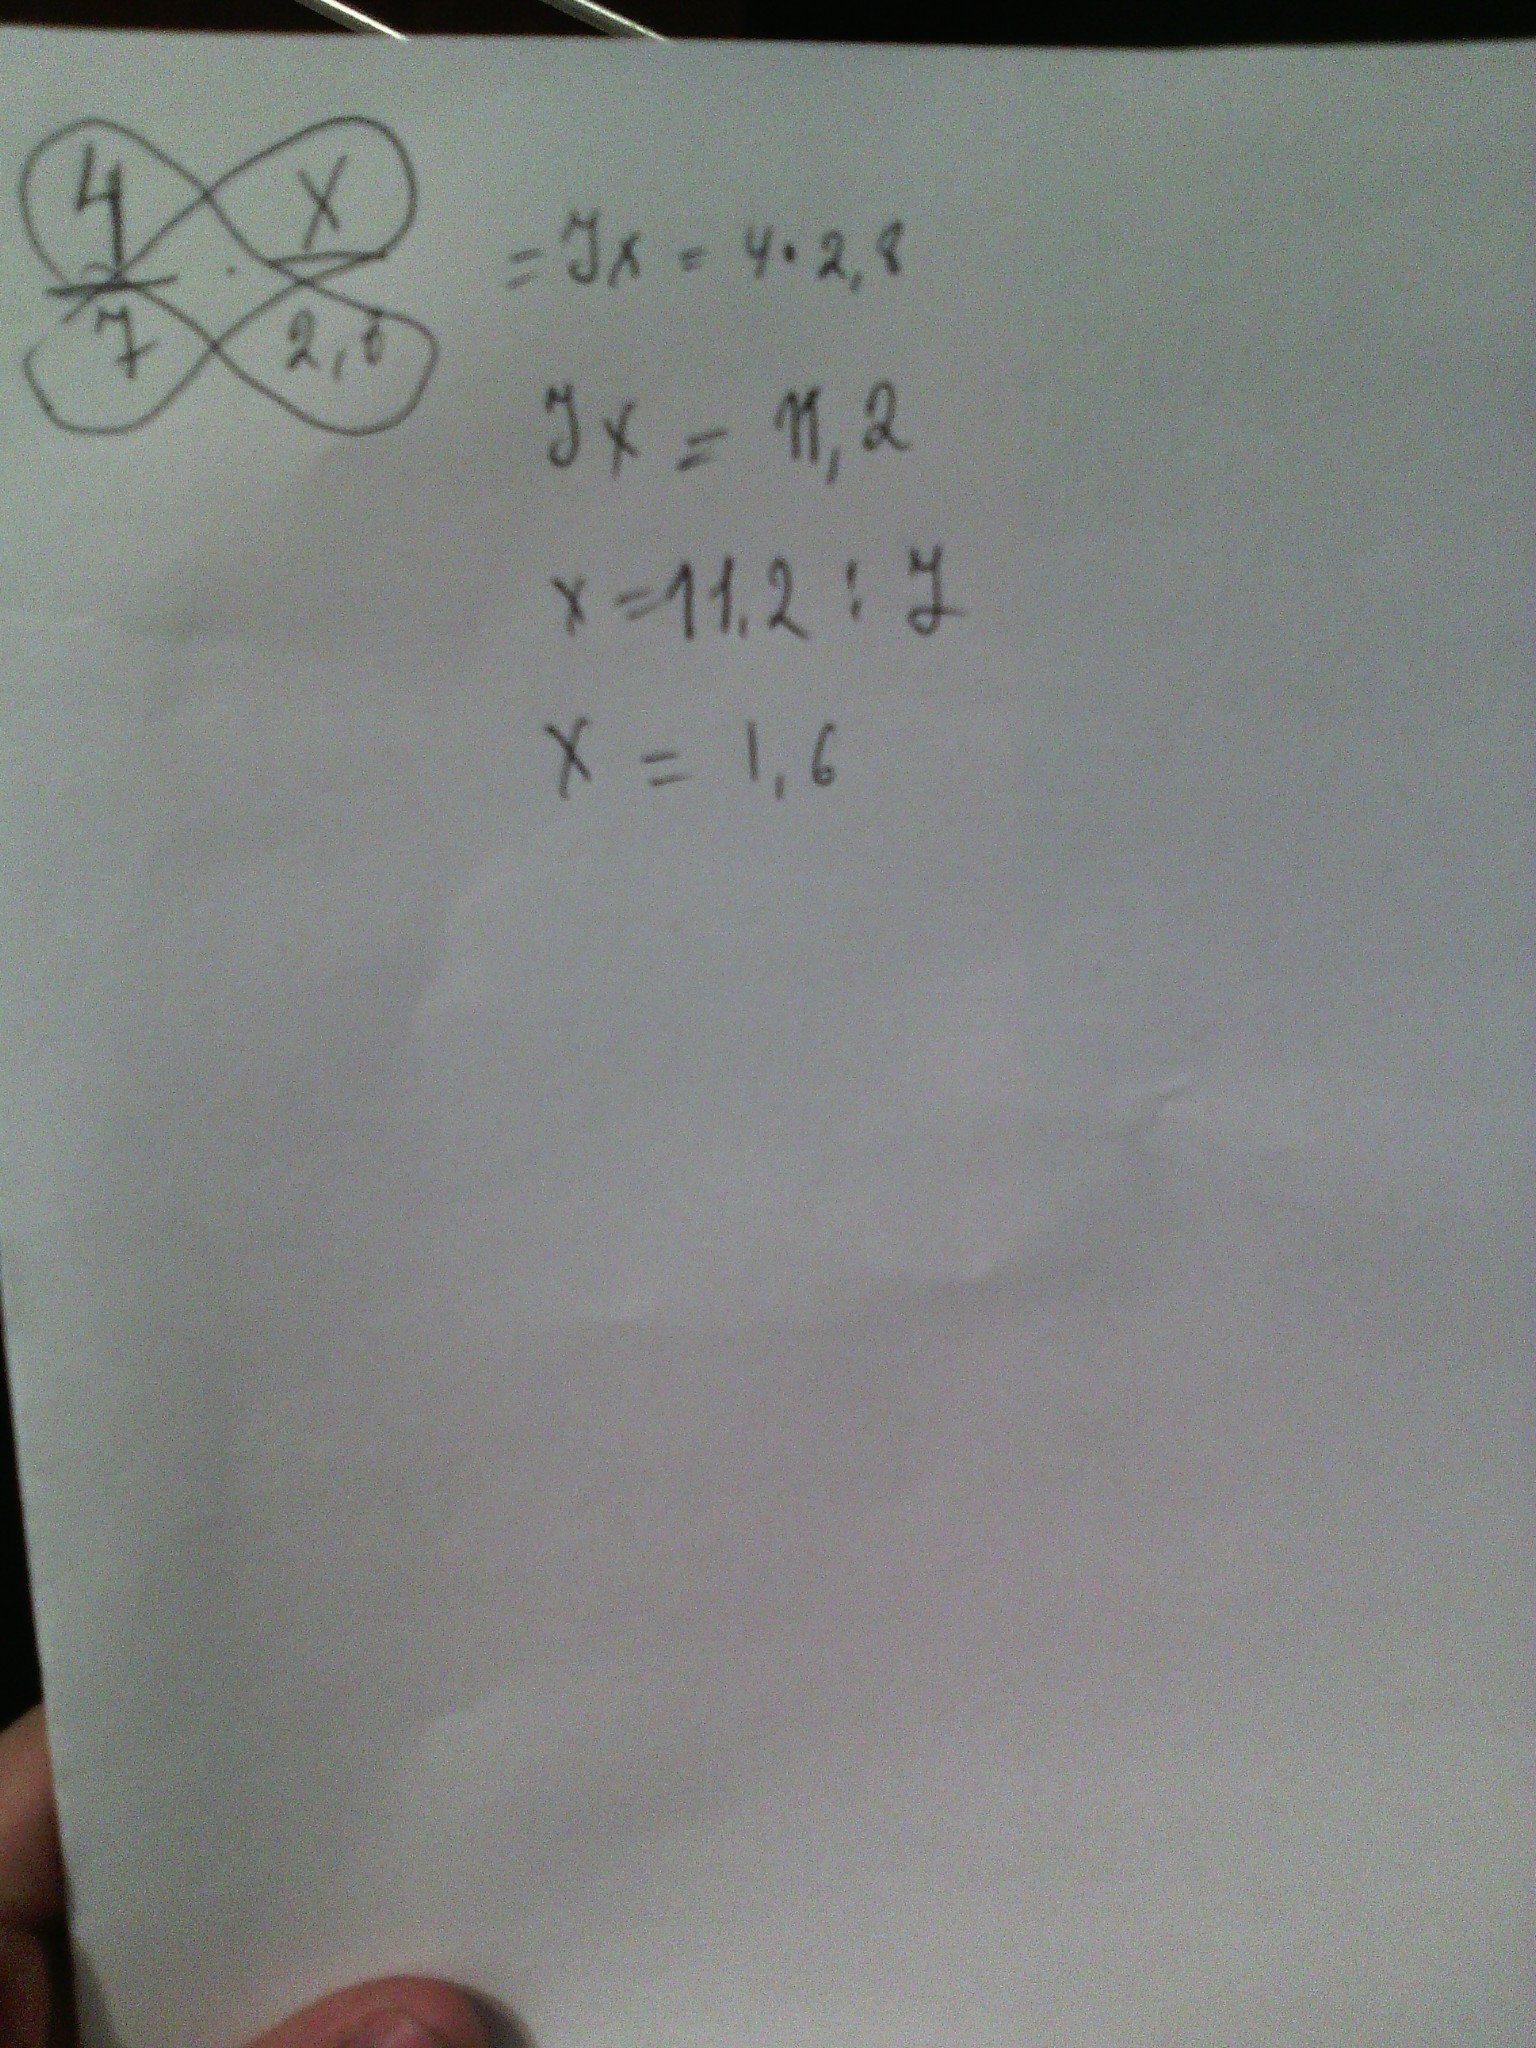 4/7 · x/2,8 = 7x = 4·2,8
7x = 11,2
x = 11,2 : 7
x = 1,6